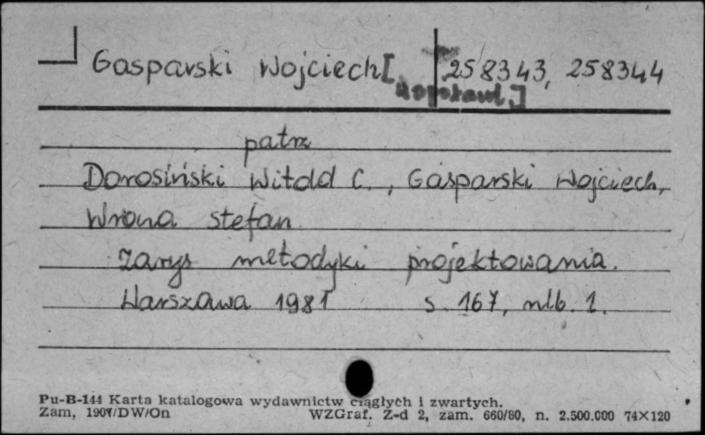 Gasparski Wojciech [ 258343, 258344
współaut.]
patrz
Dorosiński Witold C., Gasparski Wojciech,
Wrona Stefan
Zarys metodyki projektowania.
Warszawa 1981 s. 167, nlb. 1.
Pu-B-144 Karta katalogowa wydawnictw ciągłych i zwartych.
Zam, 1907/DW/On WZGraf. Z-d 2, zam. 660/80, n. 2.500.000 74×120